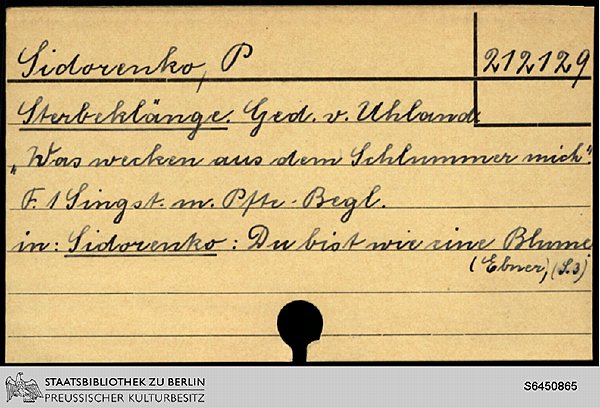 Sidorenko, P
212129
Sterbeklänge. Ged. v. Uhland.
„Was wecken aus dem Schlummer mich".
F. 1 Singst. m. Pfte-Begl.
in: Sidorenko: Du bist wie eine Blume
(Ebner) (S.3)
STAATSBIBLIOTHEK ZU BERLIN
PREUSSISCHER KULTURBESITZ
S6450865